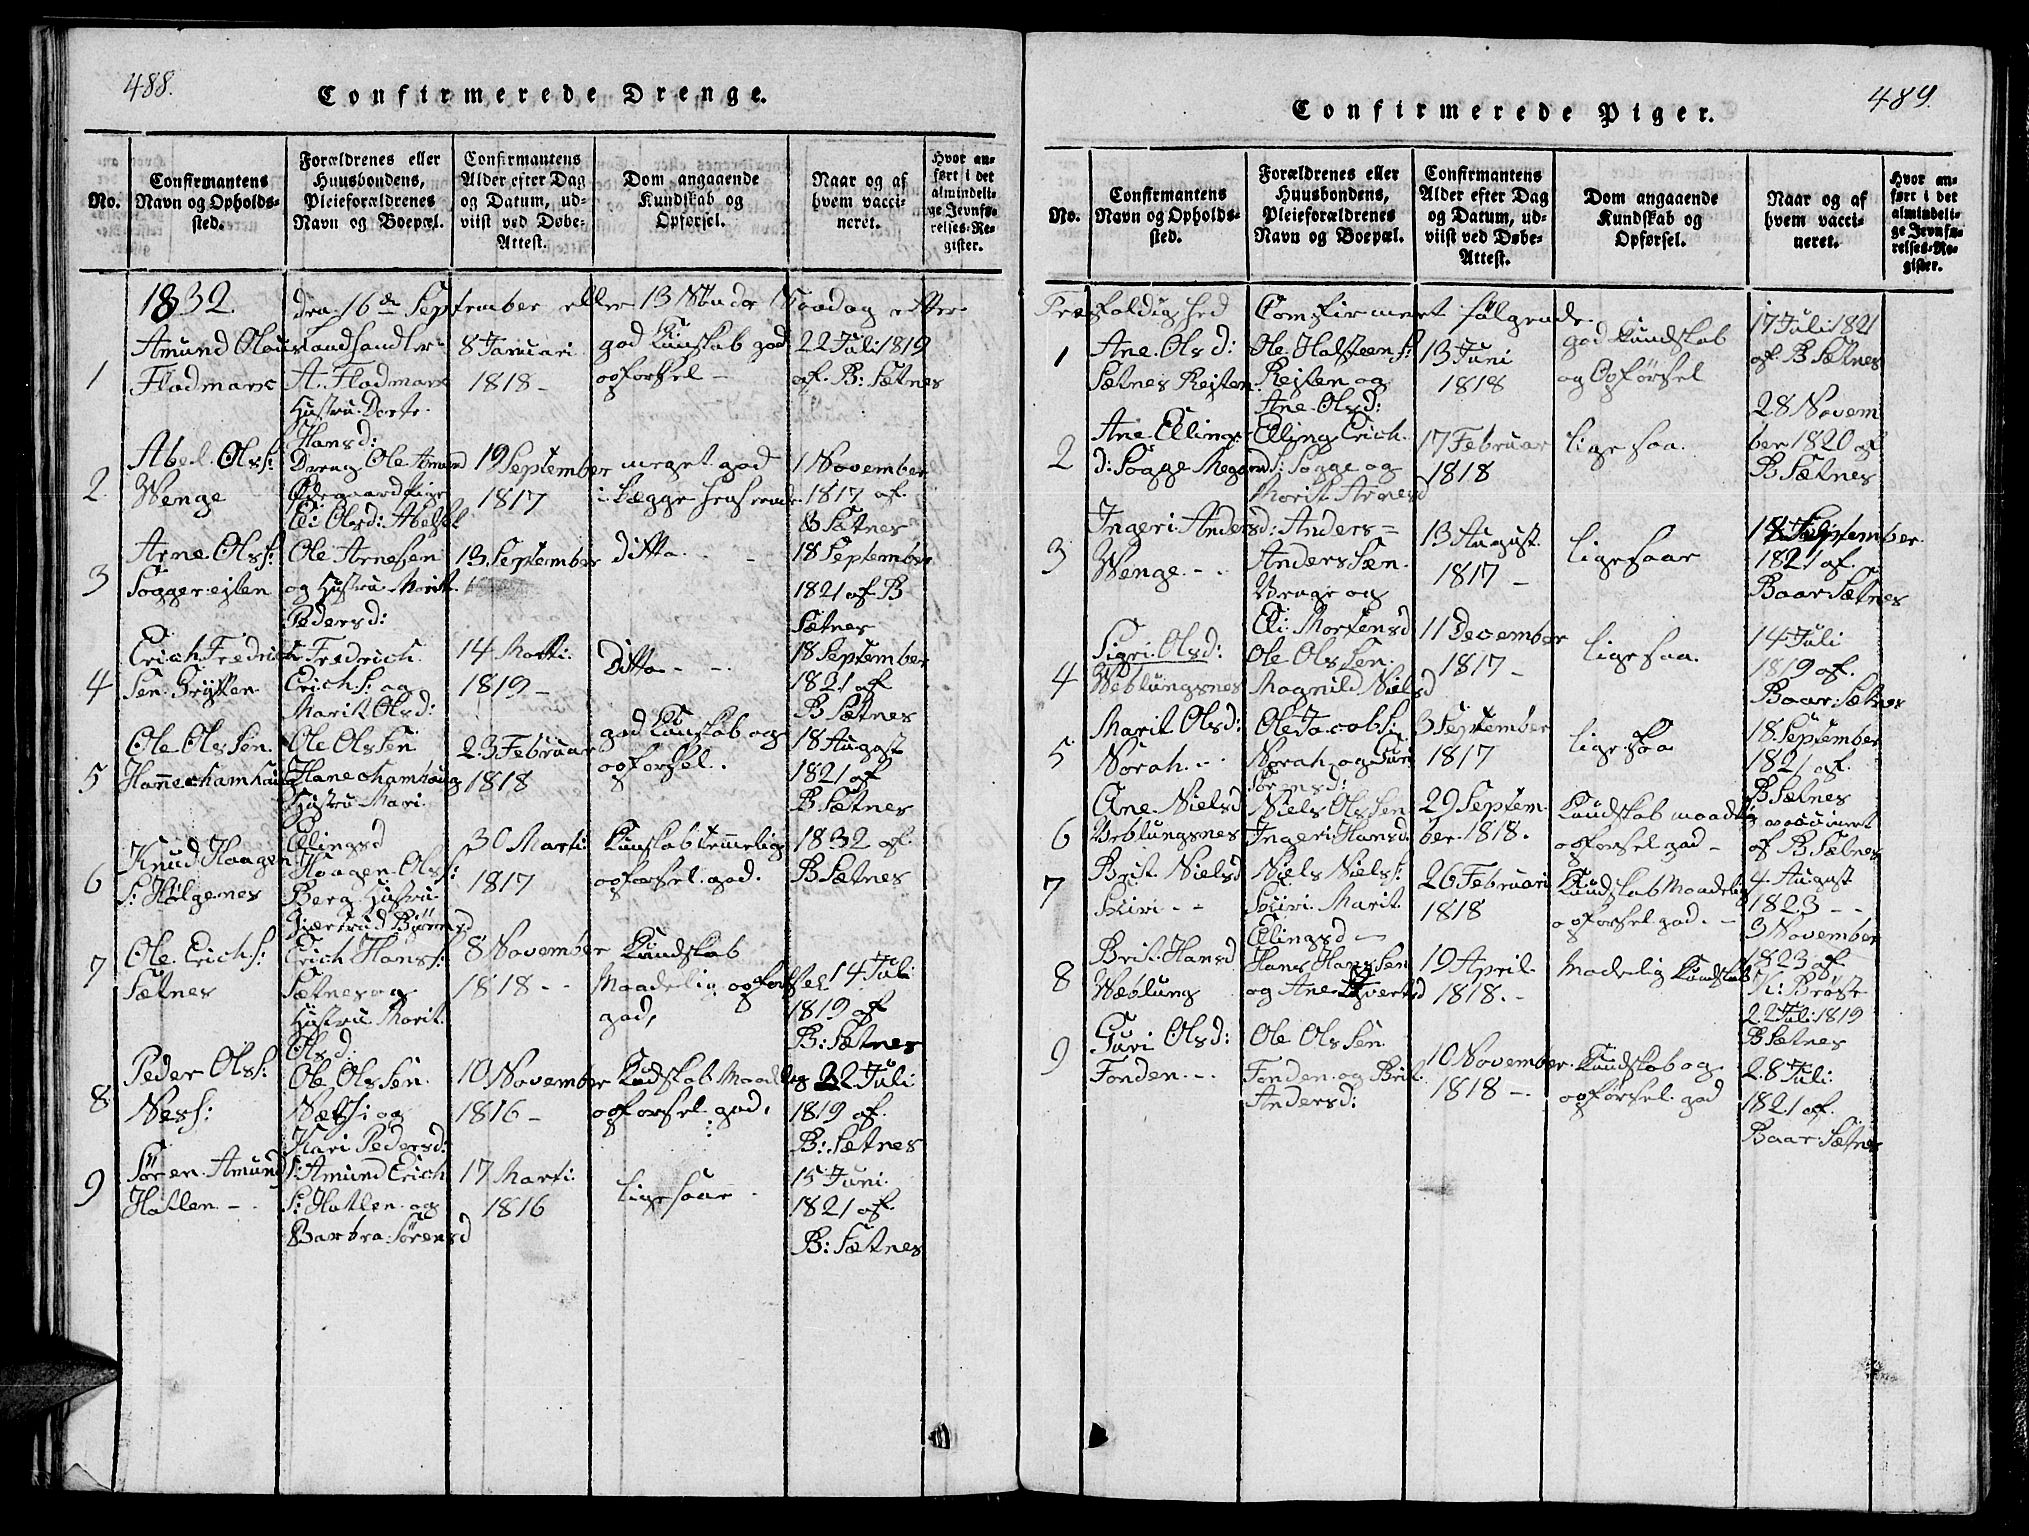 488.
Confirmerede Drenge.
No.
Confirmantens Navn og Opholds-sted.
Forældrenes eller Huusbondens, Pleieforældrenes Navn og Boepæl.
Confirmantens Alder efter Dag og Datum, ud-viist ved Døbe-Attest.
Dom angaaende Kundskab og Opførsel.
Naar og af hvem vacci-neret.
Hvor an-ført i det almindeli-ge Jevnfø-relses-Re-gister.
1832. den 16de September eller 13 Søndag efter
1
Amund Olaus
Fladmark
Landhandler
A. Fladmark
Hustru Dorte
Hansd:
8 Januari
1818 -
god Kunskab god
opforsel -
22 Juli 1819
af B: Sætnes
2.
Abel Olss:
Wenge
Dreng Ole Amund
Ødegaard Pige
Eli Olsd:
19 September
1817
meget god
i begge henseende
1 November
1817 af
B Sætnes
3
Arne Olss:
Soggereisten
Ole Arnesen
og Hustru Marit
Pedersd:
13 September
ditto - -
18 September
1821 af B
Sætnes
4
Erich Fredrich
Sen Grytten
Fredrich
Erichs: og
Marit Olsd:
14 Marti
1819 -
Ditto - -
18 September
1821 af
B Sætnes
5
Ole Olssen
Hannechamhaug
Ole Olssen
Hanechamhaug
Hustru Mari
Elingsd
23 Februar
1818
god Kunskab og
opforsel.
18 August
1821 af
B Sætnes
6
Knud Haagen
s: Hølgenes
Haagen Olss:
Berg Hustru
Gjærtrud Biørnsd
30 Marti
1817
Kunskab temmelig
opforsel god.
1832 af
B Sætnes
7
Ole Erichs:
Sætnes
Erich Hanss:
Sætnes og
Hustru Marit
Olsd
8 November
1818 - -
Kundskab
Maadelig opforsel
god,
14 Juli
1819 af
B: Sætnes
8.
Peder Olss:
Ness:
Ole Olssen
Næss: og
Kari Pedersd:
10 November
1816 -
Kudskab Maadlig
opforsel god,
22 Juli
1819 af
B: Sætnes
9
Søren Amund
Hatlen - -
s: Amund Erich
s: Hatlen og
Barbra Sørensd
17 Marti
1816
ligesaae -
15 Juni
1821 af
B: Sætnes
489.
Confirmerede Piger.
No.
Confirmantens Navn og Opholds-sted.
Forældrenes eller Huusbondens, Pleieforældrenes Navn og Boepæl.
Confirmantens Alder efter Dag og Datum, ud-viist ved Døbe-Attest.
Dom angaaende Kundskab og Opførsel.
Naar og af hvem vacci-neret.
Hvor an-ført i det almindeli-ge Jevnfø-relses-Re-gister.
Trefoldighed Comfirmeret følgende
1
Ane Olsd:
Sætnes Rejsten
Ole Halsteens:
Rejsten og
Ane Olsd:
13 Juni
1818
god Kundskab
og Opførsel
17 Juli 1821
af B Sætnes
2
Ane Ellings-
d: Sogge
Elling Erich
s: Sogge og
Marit Arnesd
17 Februar
1818
lige saa.
28 Novem
ber 1820 af
B Sætnes
3
Ingeri Andersd:
Wenge - -
Anders=
Anderssen
Wenge og
Eli Mortensd
13 August
1817 -
ligesaar
18 September
1821 af
Baar Sætnes
4
Sigri Olsd:
Weblungsnes
Ole Olssen
Magnild Nielsd
11 December
1817 -
ligesaa.
14 Juli
1819 af
Baar Sætnes
5
Marit Olsd:
Norah - -
Ole Jacobs:
Norah og Guri
Sørensd:
3 September
1817
lige saa
18 September
1821 af
B Sætnes
6
Ane Nielsd
Veblungsnes
Niels Olssen
Ingeri Hansd.
29 Septem
ber 1818.
Kundskab maadlig
opforsel god -
vaccineret
af B Sætnes
7
Brit Nielsd
Skiri - -
Niels Niels:
Skiri Marit
Elingsd -
26 Februari
1818
Kundskab Maadelig
opforsel god. -
4 August
1823 - -
8
Brit Hansd
Wæblung
Hans Hanssen
og Ane Sivertsd
19 April
1818. -
Madelig Kundskab
3 November
1823 af
K: Brøste
9
Guri Olsd:
Fonden - -
Ole Olssen
Fonden og Brit
Andersd:
10 November
1818 -
Kundskab og
opførsel god
22 Juli 1819
B Sætnes
28 Juli
1821 af
Baar Sætnes